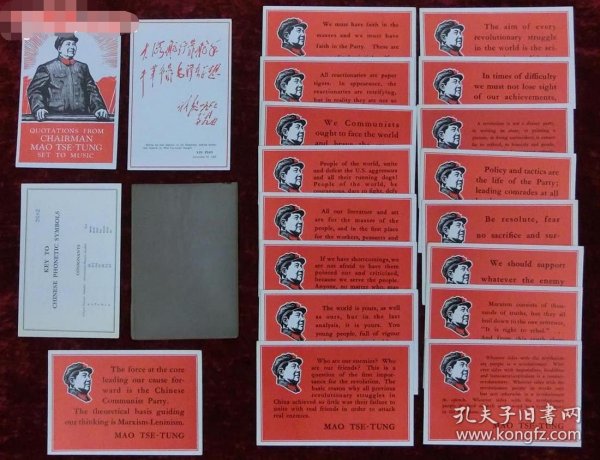 QUOTATIONS FROM
CHAIRMAN
MAO TSE-TUNG
SET TO MUSIC
大海航行靠舵手
干革命靠毛泽东思想
林彪
LIN PIAO
KEY TO
CHINESE PHONETIC SYMBOLS
CONSONANTS
The force at the core
leading our cause for-
ward is the Chinese
Communist Party.
The theoretical basis guiding
our thinking is Marxism-Leninism.
MAO TSE-TUNG
We must have faith in the
masses and we must have
faith in the Party. These are
All reactionaries are paper
tigers. In appearance, the
reactionaries are terrifying,
but in reality they are not so
We Communists
ought to face the world
and brave the
People of the world, unite
and defeat the U.S. aggressors
and all their running dogs!
People of the world, be
courageous, dare to fight, defy
All our literature and art
are for the masses of the
people, and in the first place
for the workers, peasants and
If we have shortcomings, we
are not afraid to have them
pointed out and criticized,
because we serve the people.
Anyone, no matter who, may
The world is yours, as well
as ours, but in the last
analysis, it is yours. You
young people, full of vigour
Who are our enemies? Who
are our friends? This is a
question of the first impor-
tance for the revolution. The
basic reason why all previous
revolutionary struggles in
China achieved so little was their failure to
unite with real friends in order to attack
real enemies.
MAO TSE-TUNG
The aim of every
revolutionary struggle
in the world is the sei-
In times of difficulty
we must not lose sight
of our achievements,
A revolution is not a dinner party,
or writing an essay, or painting a
picture, or doing embroidery; it cannot
be so refined, so leisurely and gentle,
Policy and tactics are
the life of the Party;
leading comrades at all
Be resolute, fear
no sacrifice and sur-
We should support
whatever the enemy
Marxism consists of thou-
sands of truths, but they all
boil down to the one sentence,
"It is right to rebel."
MAO TSE-TUNG
孔夫子旧书网
www.kongfz.com